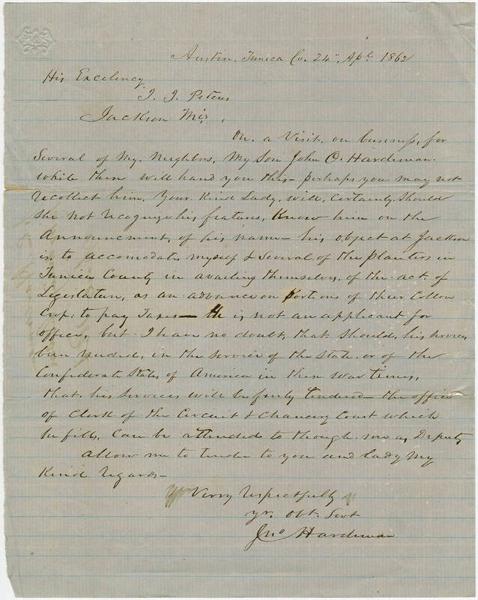 Austin, Tunica Co. 24 Apl. 1862
His Excellency
J. J. Pettus
Jackson Miss,
On a Visit, on business, for
Several of My Neighbors, My Son John C. Hardeman
while there will hand you this perhaps you may not
recollect him, Your Kind Lady, will, Certainly, Should
She not recognize his features, Know him on the
Announcement, of his name – his object at Jackson
is, to accomodate myself & Several of the planters in
Tunica County in availing themselves, of the act of
Legislature, as an advance on portions of their Cotton
Crop, to pay Taxes – He is not an applicant for
office, but I have no doubt, that Should, his services
been needed, in the Service of the State, or of the
Confederate States of America in these war times,
that, his Services will be freely tendered – the office
of Clerk of the Circuit & Chancery Court which
he fills, Can be attended to though me as Deputy
allow me to tender to you and lady My
Kind regards –
Verry respectfully
yr. obt. Sevt
Jno Hardeman